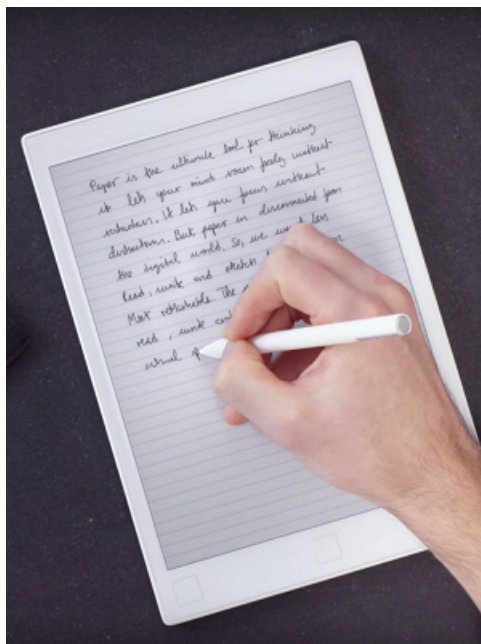 Paper is the ultimate tool for thinking
it lets your mind roam freely without
. It lets you focus without
distractions. But paper is disconnected from
the digital world. So, we
Read, write and sketch
Most remarkable. The
read, write